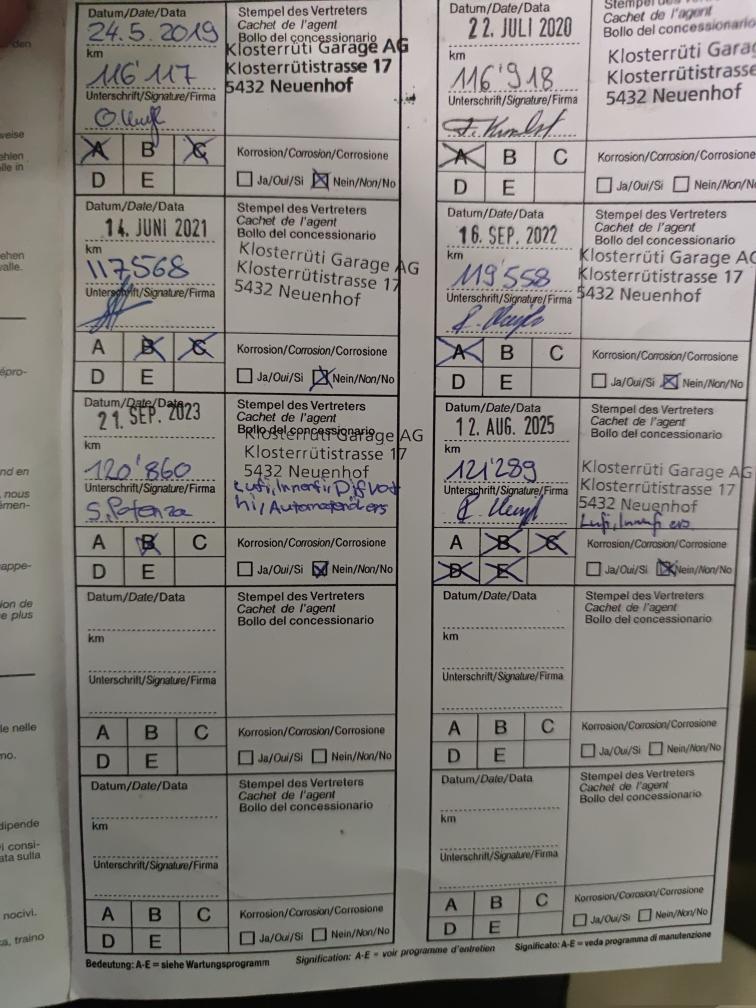 den
weise
ehlen
lle in
ehen
valle.
épro-
nd en
nous
émen-
appe-
ion de
e plus
le nelle
no.
dipende
vi consi-
ata sulla
nocivi.
ca, traino
Datum/Date/Data
24.5.2019
km
116'117
Unterschrift/Signature/Firma
Stempel des Vertreters
Cachet de l'agent
Bollo del concessionario
Klosterrüti Garage AG
Klosterrütistrasse 17
5432 Neuenhof
A B C
D E
Korrosion/Corrosion/Corrosione
Ja/Oui/Si Nein/Non/No
22. JULI 2020
km
116'918
Unterschrift/Signature/Firma
Stempel des Vertreters
Cachet de l'agent
Bollo del concessionario
Klosterrüti Garag
Klosterrütistrasse
5432 Neuenhof
A B C
D E
Korrosion/Corrosion/Corrosione
Ja/Oui/Si Nein/Non/N
Datum/Date/Data
14. JUNI 2021
km
117568
Unterschrift/Signature/Firma
Stempel des Vertreters
Cachet de l'agent
Bollo del concessionario
Klosterrüti Garage AG
Klosterrütistrasse 17
5432 Neuenhof
A B C
D E
Korrosion/Corrosion/Corrosione
Ja/Oui/Si Nein/Non/No
Datum/Date/Data
16. SEP. 2022
km
119'558
Unterschrift/Signature/Firma
Stempel des Vertreters
Cachet de l'agent
Bollo del concessionario
Klosterrüti Garage AG
Klosterrütistrasse 17
5432 Neuenhof
A B C
D E
Korrosion/Corrosion/Corrosione
Ja/Oui/Si Nein/Non/No
Datum/Date/Data
21. SEP. 2023
km
120'860
Unterschrift/Signature/Firma
S. Potenza
Stempel des Vertreters
Cachet de l'agent
Bollo del concessionario
Klosterrüti Garage AG
Klosterrütistrasse 17
5432 Neuenhof
A B C
D E
Korrosion/Corrosion/Corrosione
Ja/Oui/Si Nein/Non/No
Datum/Date/Data
12. AUG. 2025
km
121'289
Unterschrift/Signature/Firma
Stempel des Vertreters
Cachet de l'agent
Bollo del concessionario
Klosterrüti Garage AG
Klosterrütistrasse 17
5432 Neuenhof
A B C
D E
Korrosion/Corrosion/Corrosione
Ja/Oui/Si Nein/Non/No
Datum/Date/Data
km
Unterschrift/Signature/Firma
Stempel des Vertreters
Cachet de l'agent
Bollo del concessionario
A B C
D E
Korrosion/Corrosion/Corrosione
Ja/Oui/Si Nein/Non/No
Datum/Date/Data
km
Unterschrift/Signature/Firma
Stempel des Vertreters
Cachet de l'agent
Bollo del concessionario
A B C
D E
Korrosion/Corrosion/Corrosione
Ja/Oui/Si Nein/Non/No
Datum/Date/Data
km
Unterschrift/Signature/Firma
Stempel des Vertreters
Cachet de l'agent
Bollo del concessionario
A B C
D E
Korrosion/Corrosion/Corrosione
Ja/Oui/Si Nein/Non/No
Datum/Date/Data
km
Unterschrift/Signature/Firma
Stempel des Vertreters
Cachet de l'agent
Bollo del concessionario
A B C
D E
Korrosion/Corrosion/Corrosione
Ja/Oui/Si Nein/Non/No
Bedeutung: A-E = siehe Wartungsprogramm Signification: A-E = voir programme d'entretien Significato: A-E = veda programma di manutenzione